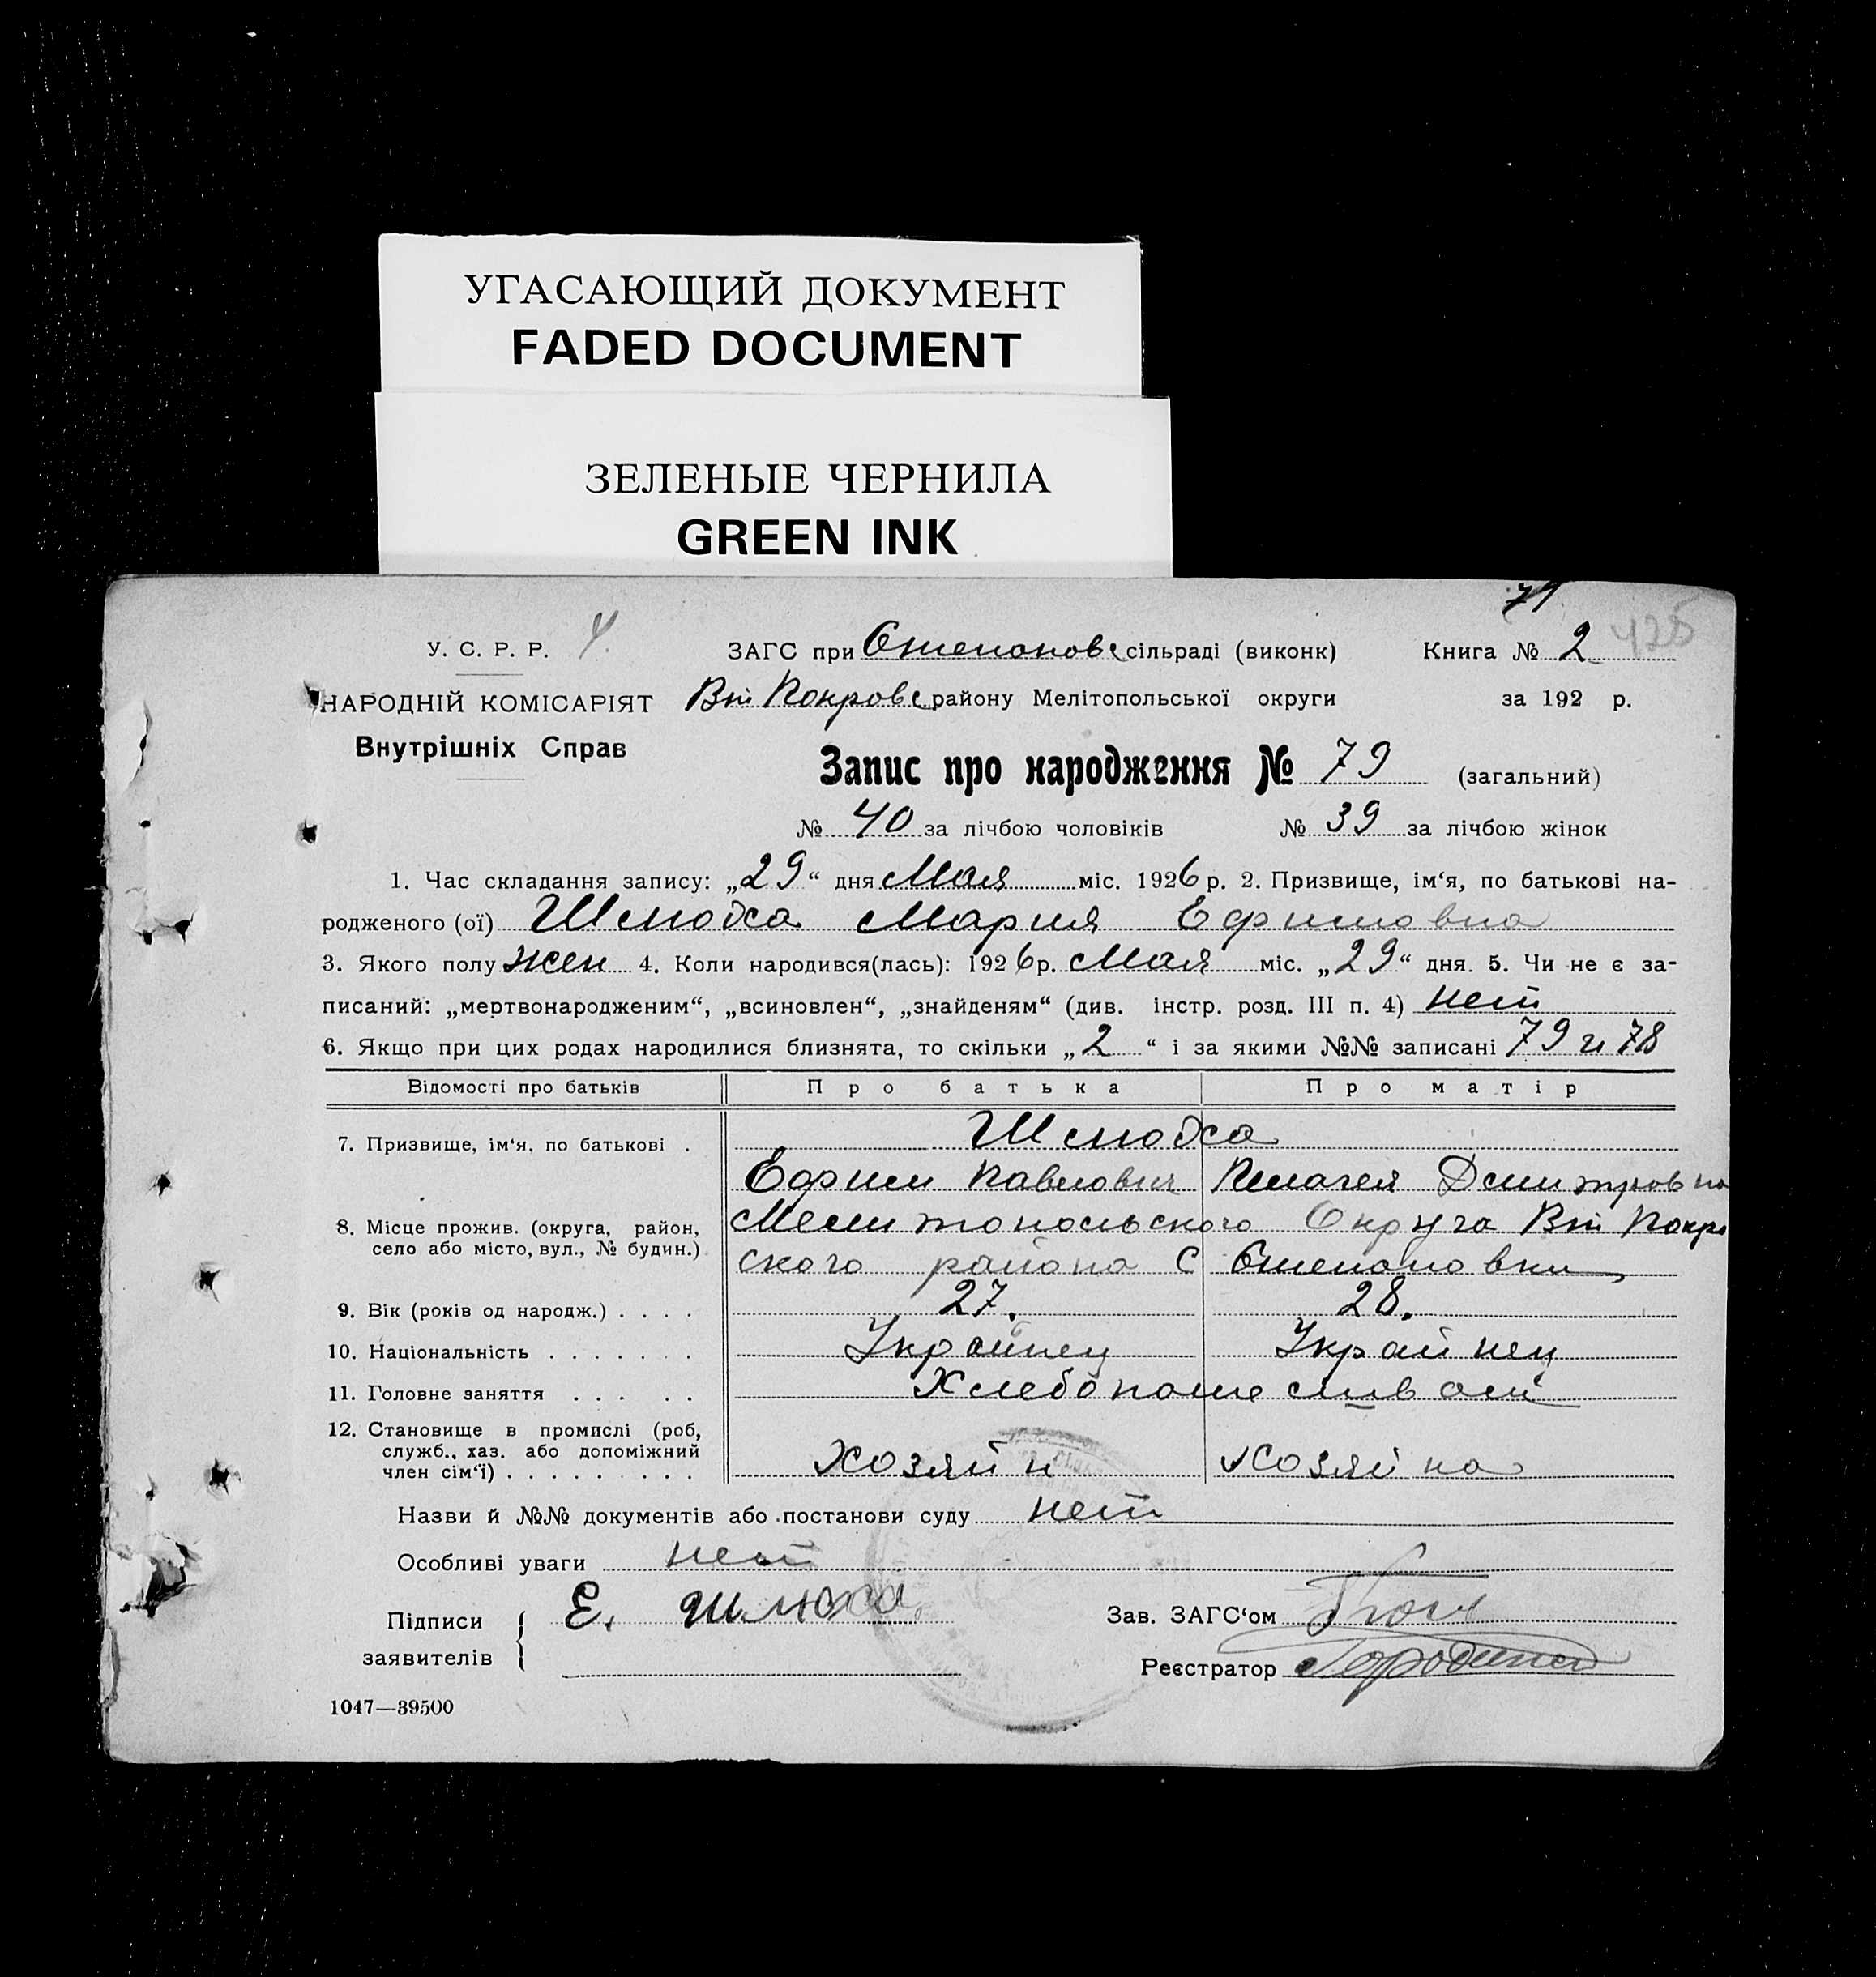 УГАСАЮЩИЙ ДОКУМЕНТ
FADED DOCUMENT
ЗЕЛЕНЫЕ ЧЕРНИЛА
GREEN INK
71
У. С. Р. Р. ЗАГС при Степановс сільраді (виконк) Книга № 2 425
НАРОДНІЙ КОМІСАРІЯТ Вт Покровс району Мелітопольської округи за 192 р.
Внутрішніх Справ
Запис про народження № 79 (загальний)
№ 40 за лічбою чоловіків № 39 за лічбою жінок
1. Час складання запису: „29“ дня Мая міс. 1926 р. 2. Призвище, ім‘я, по батькові на-
родженого (ої) Мария Ефимовна
3. Якого полу жен 4. Коли народився(лась): 1926 р. Мая міс. „29“ дня. 5. Чи не є за-
писаний: „мертвонародженим“, „всиновлен“, „знайденям“ (див. інстр. розд. III п. 4) нет
6. Якщо при цих родах народилися близнята, то скільки „2“ і за якими №№ записані 79 и 78
Відомості про батьків Про батька Про матір
7. Призвище, ім‘я, по батькові .
Ефим Павлович Пелагея Дмитровна
8. Місце прожив. (округа, район, Мелитопольского Округа Вт Покро
село або місто, вул., № будин.) ского района С Степановки
9. Вік (років од народж.) . . . . 27. 28.
10. Національність . . . . . . . Украйнец Украйнец
11. Головне заняття . . . . . Хлебопашеством
12. Становище в промислі (роб,
служб., хаз. або допоміжний
член сім‘ї) . . . . . . . . . Хозяйн Хозяйка
Назви й №№ документів або постанови суду нет
Особливі уваги нет
Підписи Е. Зав. ЗАГС‘ом
заявителів Реєстратор
1047—39500